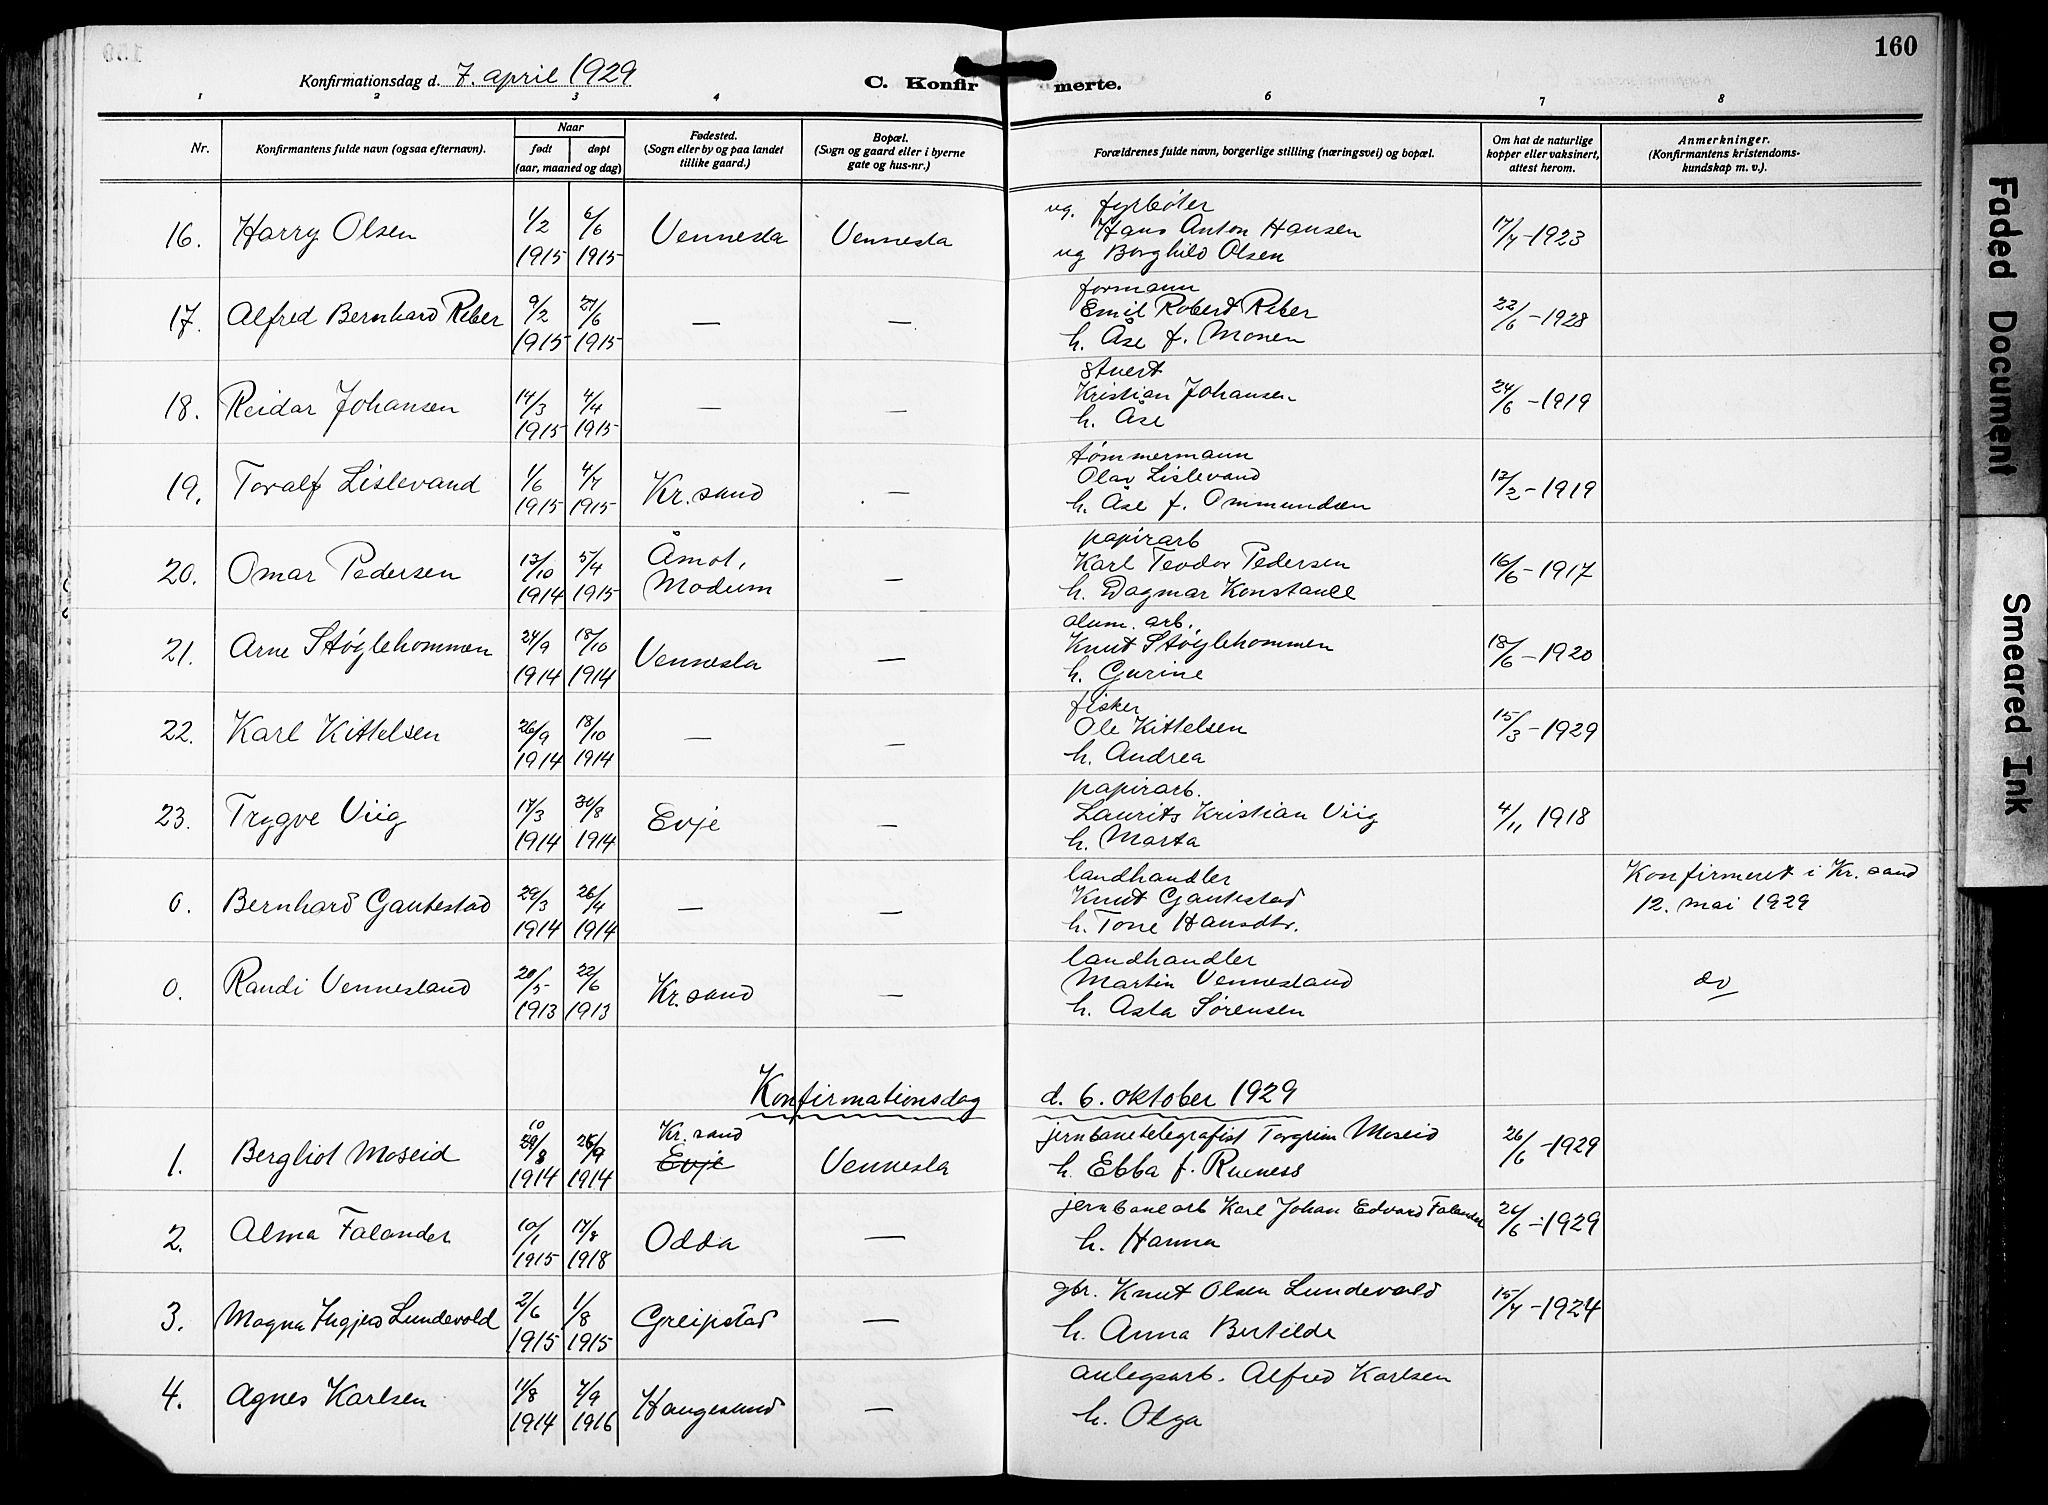 160
Konfirmationsdag d. 7. april 1929
C. Konfirmerte.
1 2 3 4 6 7 8
Nr.
Konfirmantens fulde navn (ogsaa efternavn).
Naar
født døpt
(aar, maaned og dag)
Fødested.
(Sogn eller by og paa landet
tillike gaard.)
Bopæl.
(Sogn og gaard eller i byerne
gate og hus-nr.)
Forældrenes fulde navn, borgerlige stilling (næringsvei) og bopæl.
Om hat de naturlige
kopper eller vaksinert,
attest herom.
Anmerkninger.
(Konfirmantens kristendoms-
kundskap m. v.).
16. Harry Olsen 1/2 1915 6/6 1915 Vennesla Vennesla
ug. fyrbøter
Hans Anton Hansen
ug Borghild Olsen
17/7-1923
17. Alfred Bernhard Reber 9/2 1915 27/6 1915 — —
formann
Emil Robert Reber
h. Åse f. Monen
22/6-1928
18. Reidar Johansen 14/3 1915 4/4 1915 — —
stuert
Kristian Johansen
h. Åse
24/6-1919
19. Toralf Lislevand 1/6 1915 4/7 1915 Kr.sand —
tømmermann
Olav Lislevand
h. Åse f. Ommundsen
13/2-1919
20. Omar Pedersen 13/10 1914 5/4 1915 Åmot, Modum —
papirarb
Karl Teodor Pedersen
h. Dagmar Konstance
16/6-1917
21. Arne Støylehommen 24/9 1914 18/10 1914 Vennesla —
alum. arb.
Knut Støylehommen
h. Gurine
18/6-1920
22. Karl Kittelsen 26/9 1914 18/10 1914 — —
fisker
Ole Kittelsen
h. Andrea
15/3-1929
23. Trygve Viig 17/3 1914 30/8 1914 Evje —
papirarb.
Laurits Kristian Viig
h. Marta
4/11 1918
0. Bernhard Gautestad 29/3 1914 26/4 1914 — —
landhandler
Knut Gautestad
h. Tone Hansdtr.
Konfirmeret i Kr. sand
12. mai 1929
0. Randi Vennesland 20/5 1913 22/6 1913 Kr.sand —
landhandler
Martin Vennesland
h. Asta Sørensen
do
Konfirmationsdag d. 6. oktober 1929
1. Bergliot Moseid 10/8 1914 1914 Kr. sand Evje Vennesla
jernbanetelegrafist Torgrim Moseid
h. Ebba f.
26/6-1929
2. Alma Falander 10/1 1915 17/8 1918 Odda —
jernbanearb Karl Johan Edvard Falander
h. Hanna
26/6-1929
3. Magna Ingjerd Lundevold 2/6 1915 1/8 1915 Greipstad —
gbr. Knut Olsen Lundevold
h. Anna Bertilde
15/7-1924
4. Agnes Karlsen 11/8 1914 7/9 1916 Haugesund —
anlegsarb. Alfred Karlsen
h. Olga
Faded Document
Smeared Ink